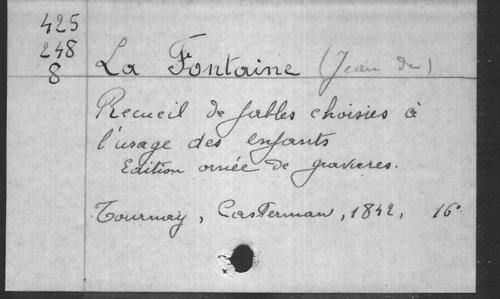 425
248
8
La Fontaine (Jean de)
Recueil de fables choisies à
l'usage des enfants
Edition ornée de gravures.
Tournay, Casterman, 1842, 16°